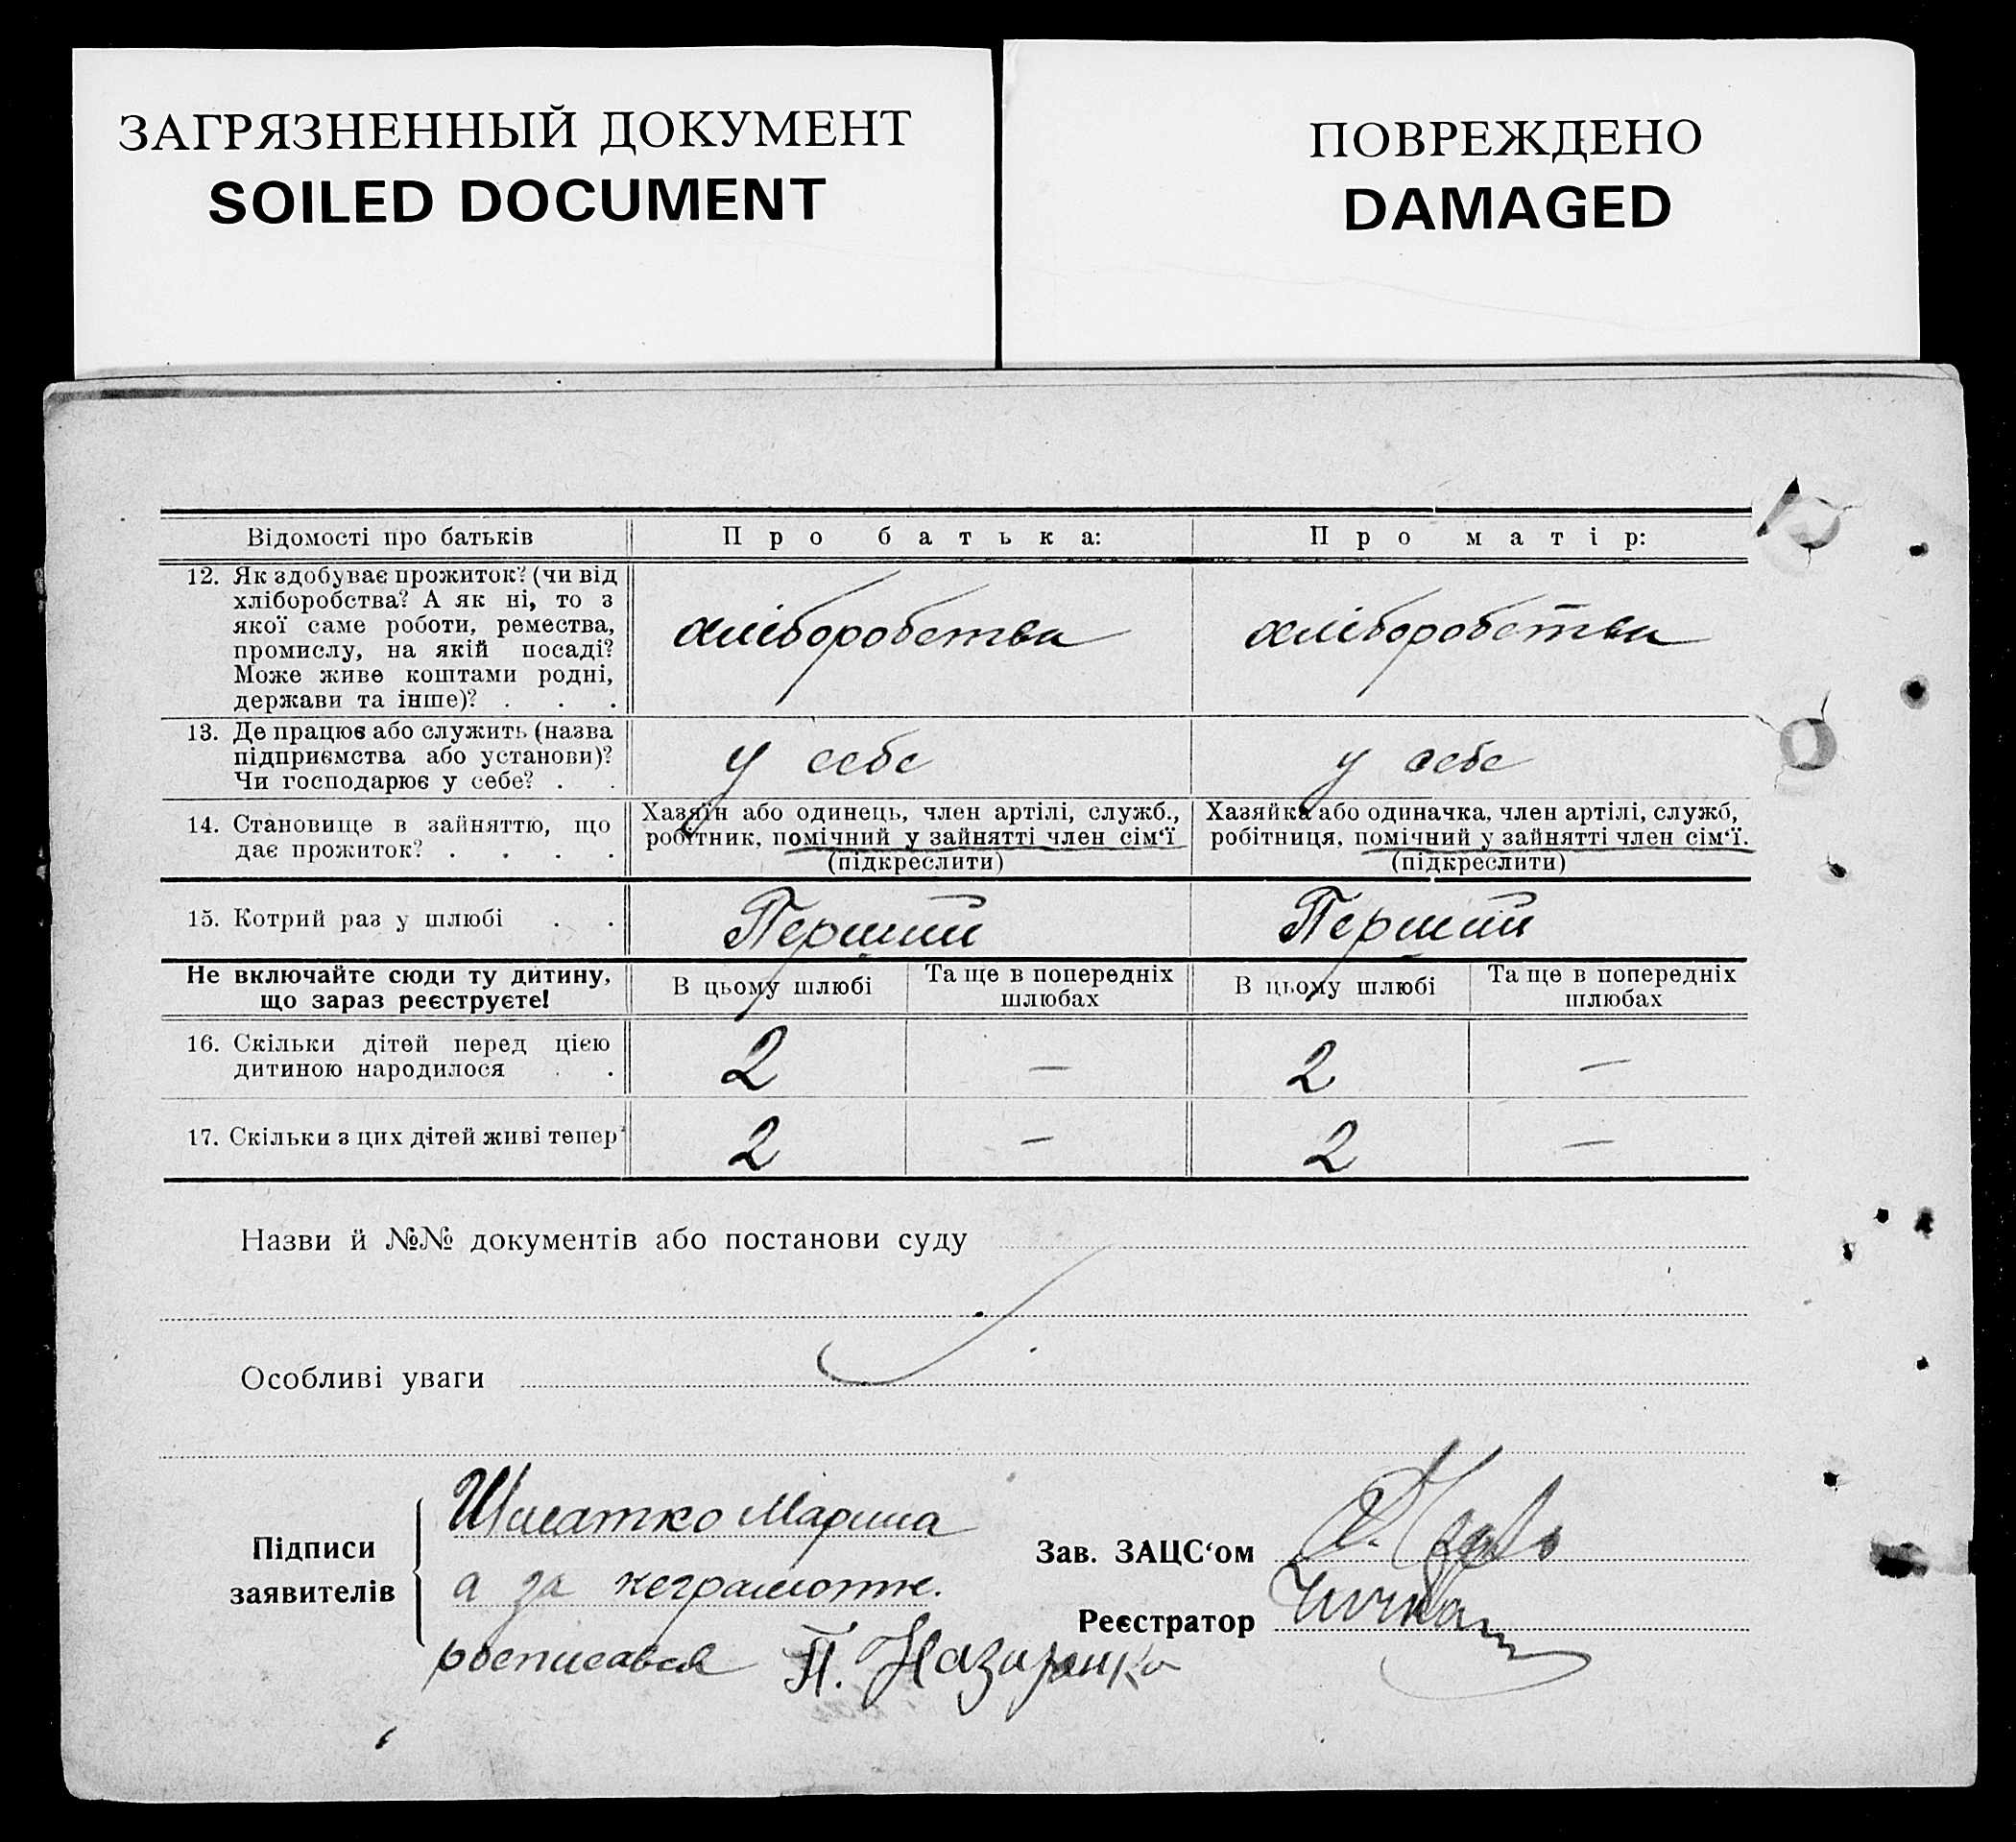 ЗАГРЯЗНЕННЫЙ ДОКУМЕНТ
SOILED DOCUMENT
ПОВРЕЖДЕНО
DAMAGED
Відомості про батьків
Про батька:
Про матір:
12. Як здобуває прожиток? (чи від
хліборобства? А як ні, то з
якої саме роботи, ремества,
промислу, на якій посаді?
Може живе коштами родні,
держави та інше)? . . .
хліборобства
хліборобства
13. Де працює або служить (назва
підприємства або установи)?
Чи господарює у себе? . .
у себе
у себе
14. Становище в зайняттю, що
дає прожиток? . . . .
Хазяїн або одинець, член артілі, служб.,
робітник, помічний у зайнятті член сім‘ї
(підкреслити)
Хазяйка або одиначка, член артілі, служб,
робітниця, помічний у зайнятті член сім‘ї.
(підкреслити)
15. Котрий раз у шлюбі . .
Перший
Перший
Не включайте сюди ту дитину,
що зараз реєструєте!
В цьому шлюбі
Та ще в попередніх
шлюбах
В цьому шлюбі
Та ще в попередніх
шлюбах
16. Скільки дітей перед цією
дитиною народилося . .
2
—
2
—
17. Скільки з цих дітей живі тепер
2
—
2
—
Назви й №№ документів або постанови суду
Особливі уваги
Підписи
заявителів
Марина
а за неграмотн.
росписався П.
Зав. ЗАЦС‘ом
Реєстратор